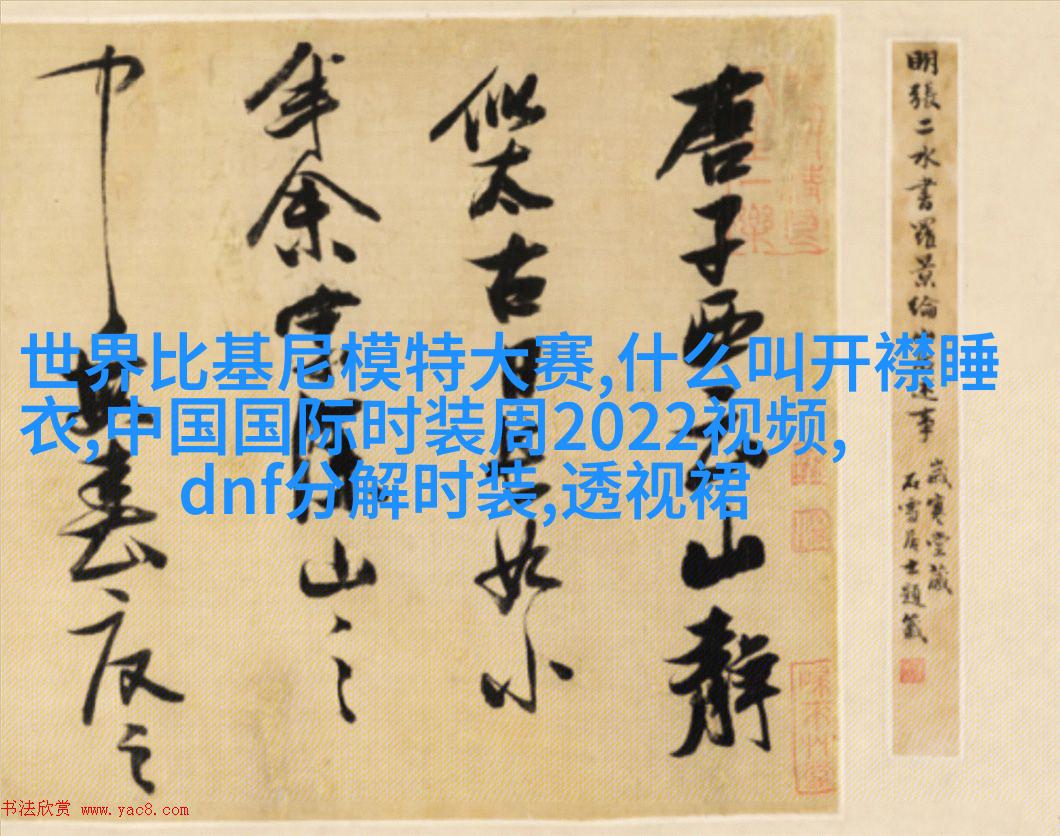 世界比基尼模特大赛,什么叫开襟睡
衣,中国国际时装周2022视频,
dnf分解时装,透视裙
明張二水書羅景綸山居述事
歲寒堂藏
石雪居士題籤
唐子西云山靜
似太古日長如小
年余家深山之
中每春夏之
书法欣赏 www.yac8.com